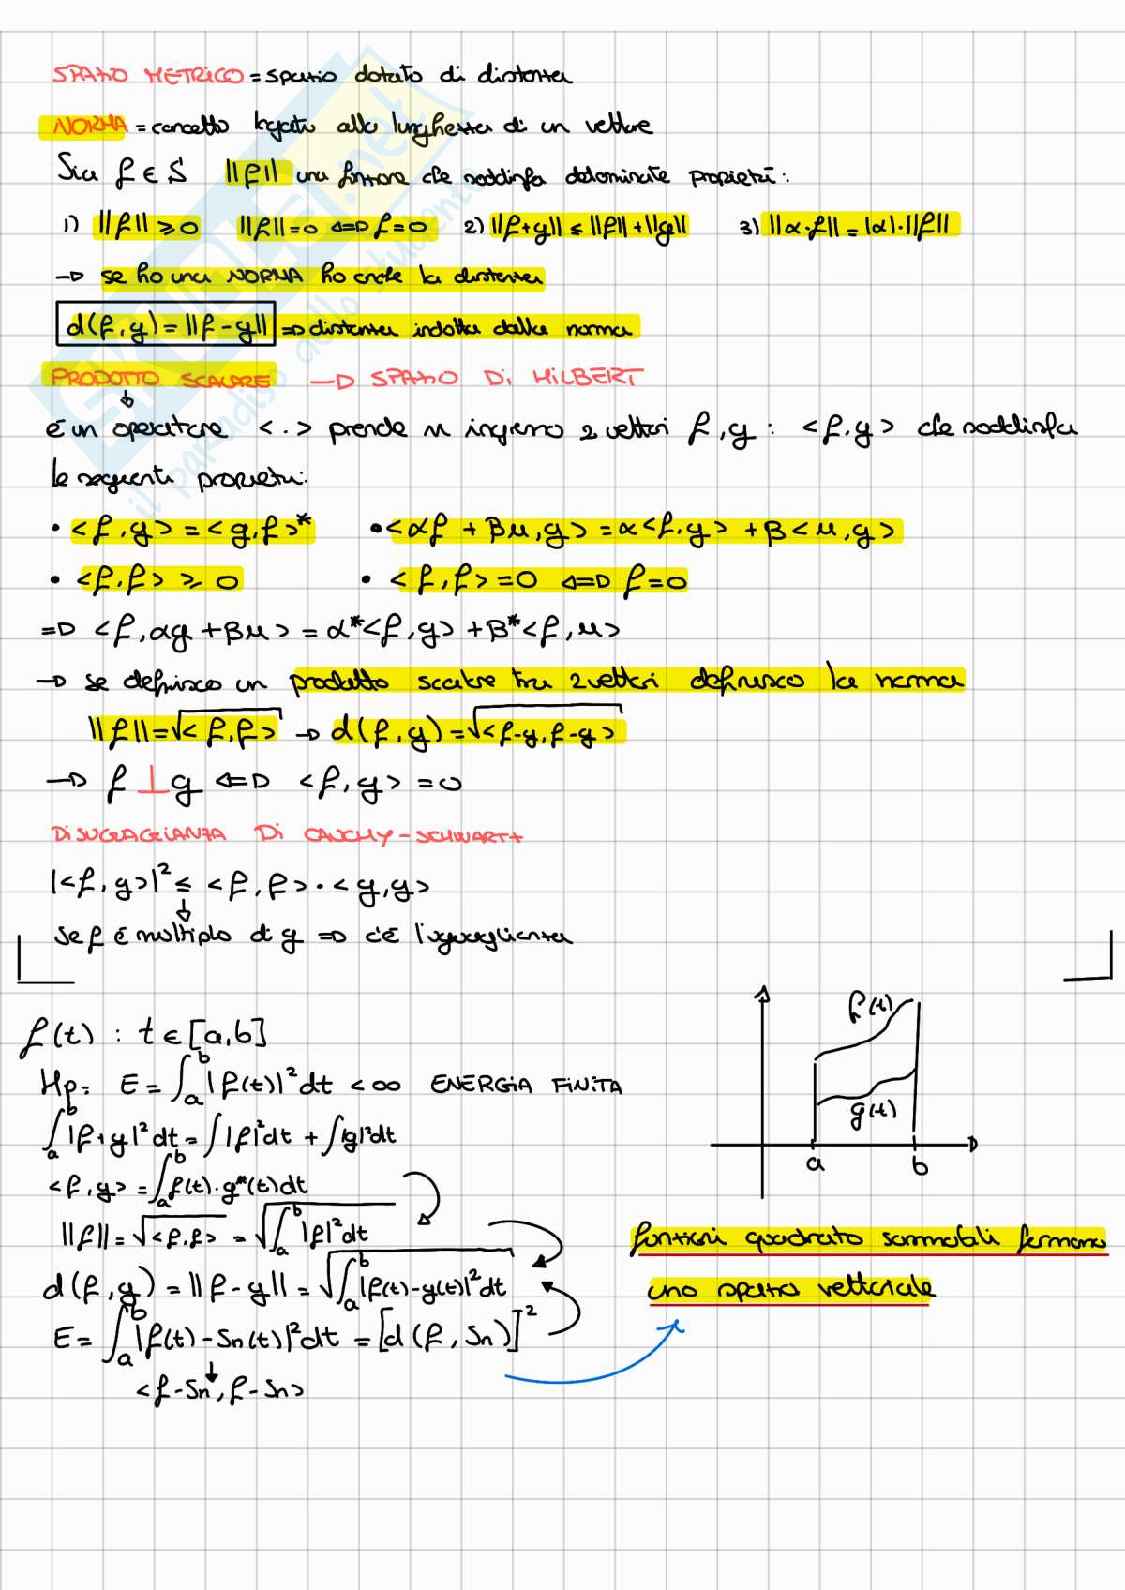 SPAZIO METRICO = spazio dotato di distanza
NORMA = concetto legato alla lunghezza di un vettore
Sia f ∈ S ||f|| una funzione che soddisfa determinate proprietà:
1) ||f|| ≥ 0 ||f|| = 0 <=> f = 0 2) ||f+g|| ≤ ||f|| + ||g|| 3) ||α·f|| = |α|·||f||
→ se ho una NORMA ho anche la distanza
d(f,g) = ||f-g|| => distanza indotta dalla norma
PRODOTTO SCALARE → SPAZIO Di HILBERT
↓
è un operatore <·> prende in ingresso 2 vettori f,g : <f,g> che soddisfa
le seguenti proprietà:
• <f,g> = <g,f>* • <αf + βu,g> = α<f,g> + β<u,g>
• <f,f> ≥ 0 • <f,f> = 0 <=> f = 0
=> <f,αg + βu> = α*<f,g> + β*<f,u>
→ se definisco un prodotto scalare tra 2 vettori definisco la norma
||f|| = √<f,f> → d(f,g) = √<f-g,f-g>
→ f ⊥ g <=> <f,g> = 0
DiSUGUAGLIANZA Di CAUCHY-SCHWARTZ
|<f,g>|² ≤ <f,f>·<g,g>
↓
se f è multiplo di g => c'è l'uguaglianza
f(t) : t ∈ [a,b]
Hp: E = ∫ₐᵇ |f(t)|² dt < ∞ ENERGiA FiNiTA
∫ₐᵇ |f+g|² dt = ∫|f|² dt + ∫|g|² dt
<f,g> = ∫ₐᵇ f(t)·g*(t) dt
||f|| = √<f,f> = √∫ₐᵇ |f|² dt
d(f,g) = ||f-g|| = √∫ₐᵇ |f(t)-g(t)|² dt
E = ∫ₐᵇ |f(t)-Sn(t)|² dt = [d(f,Sn)]²
↓
<f-Sn,f-Sn>
f(t)
g(t)
a b
funzioni quadrato sommabili formano
uno spazio vettoriale